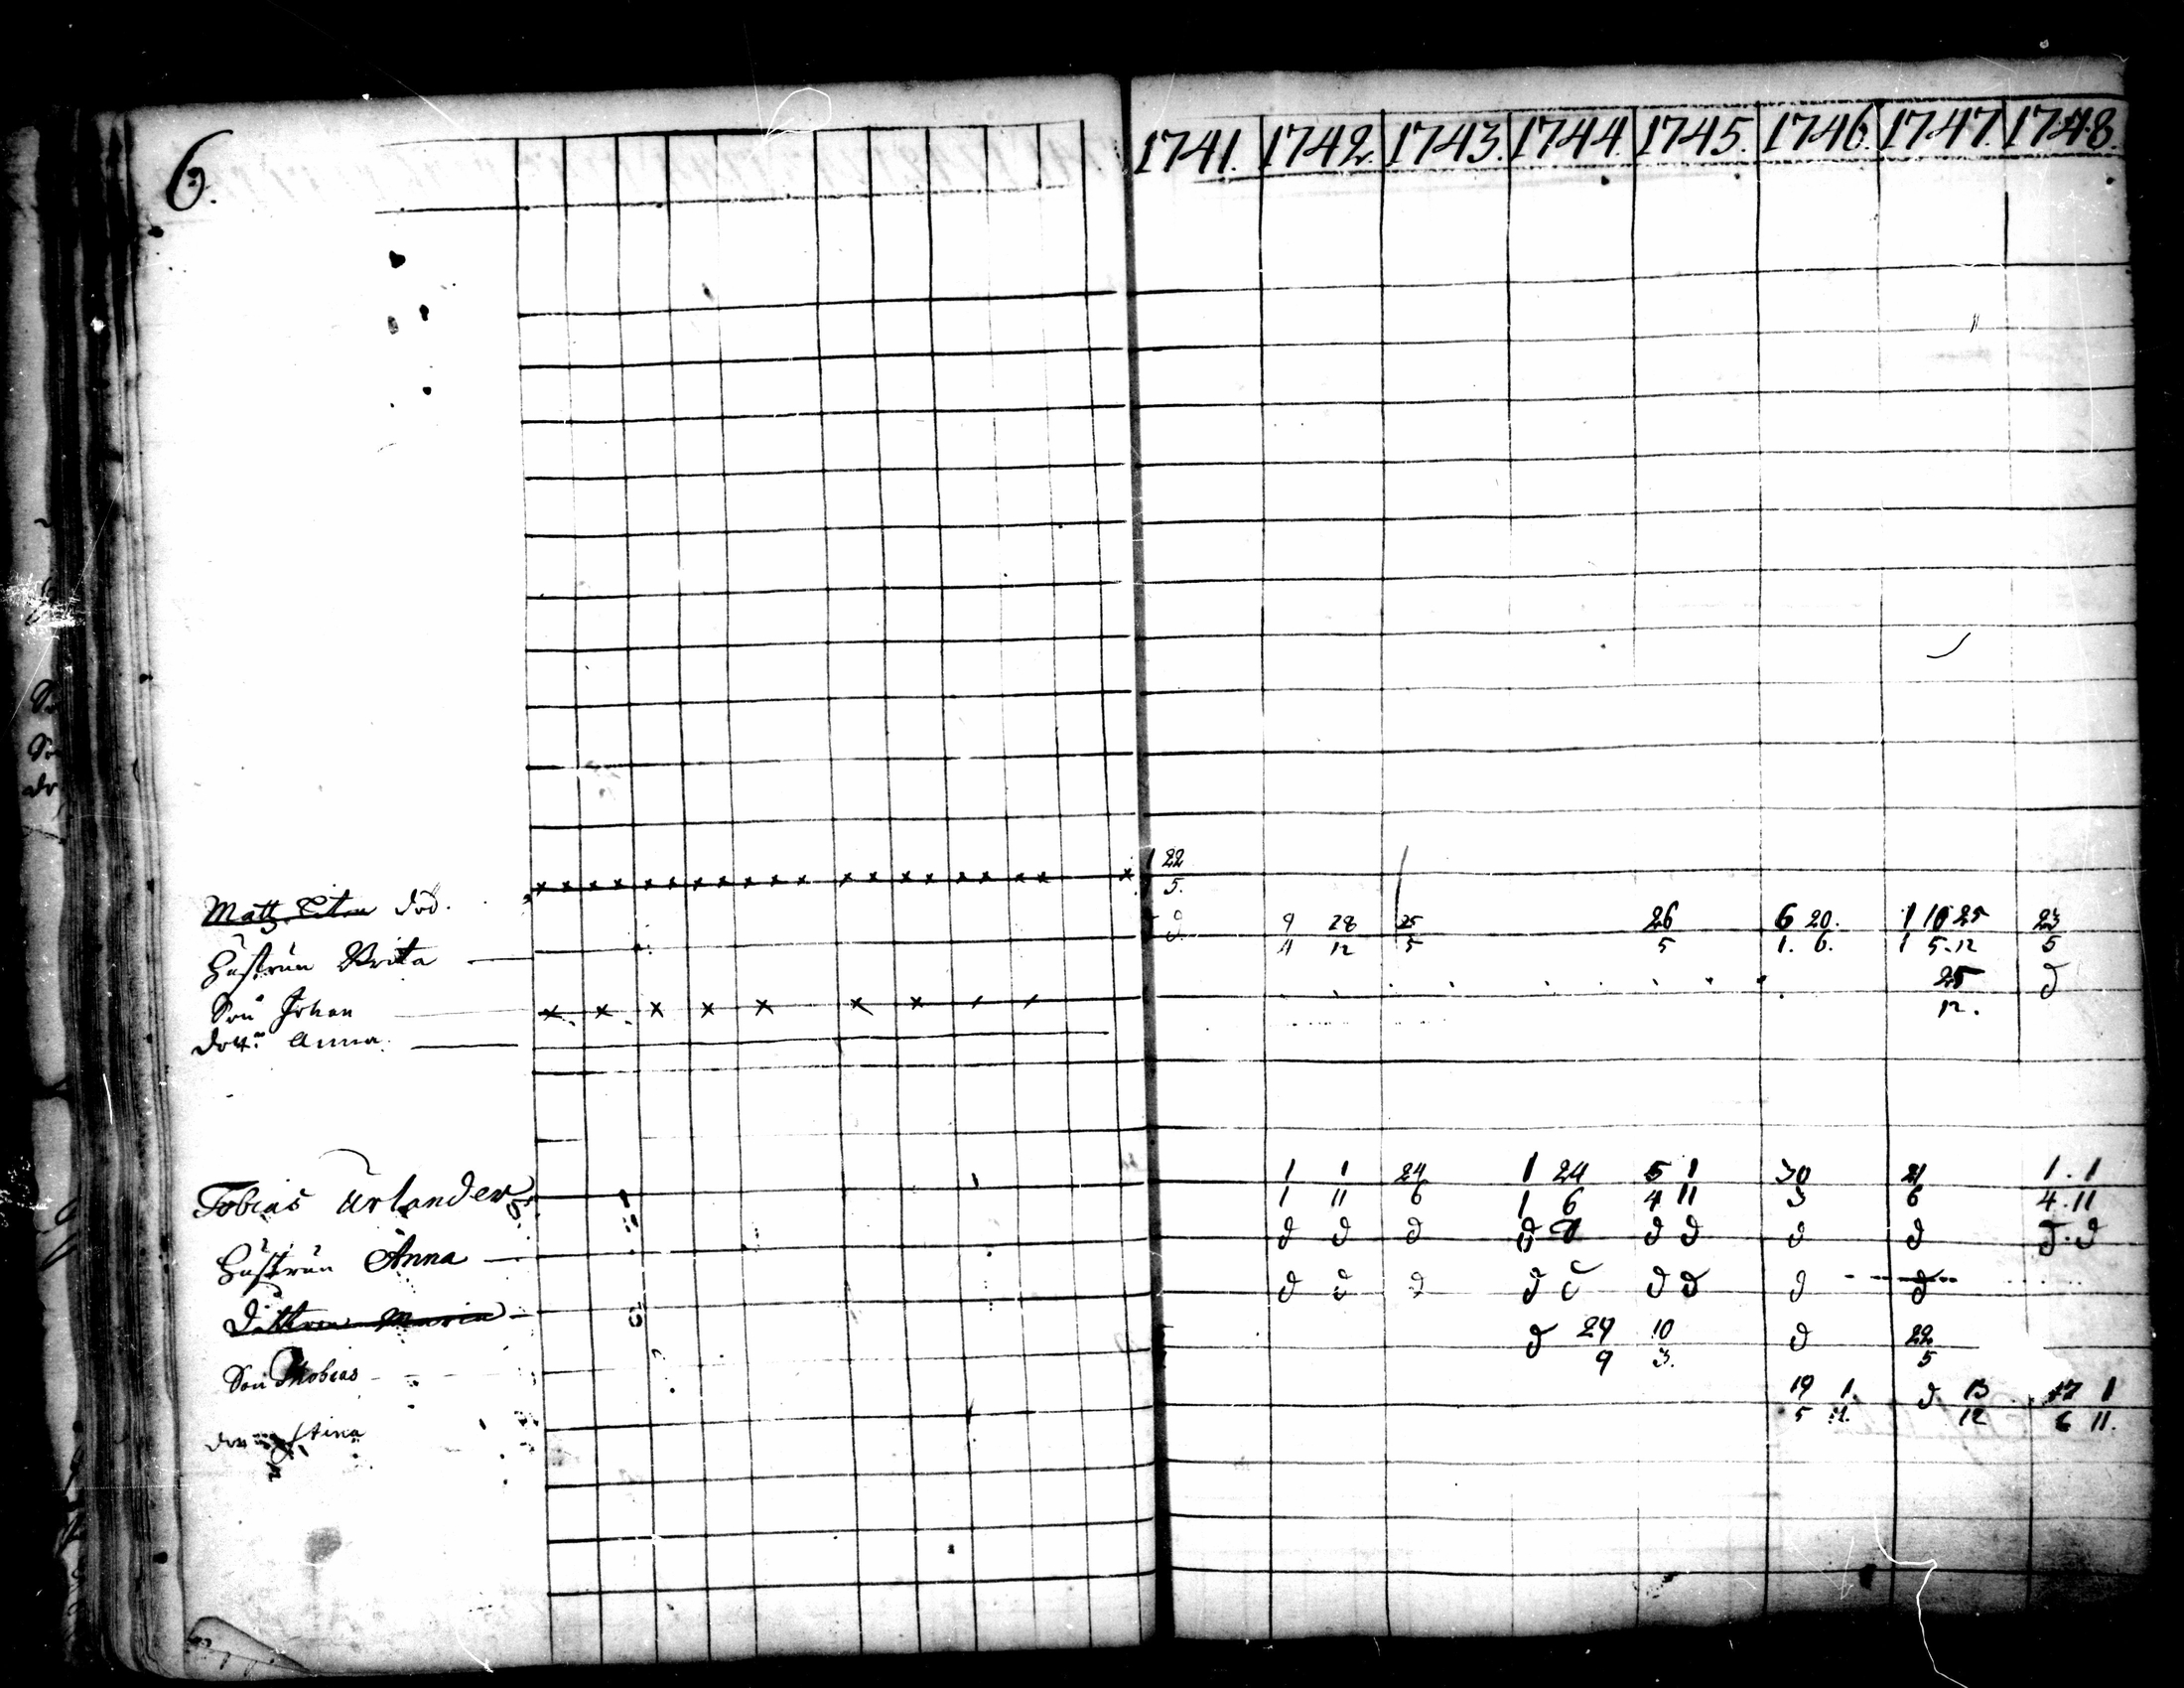 6.
1741. 1742. 1743. 1744. 1745. 1746. 1747. 1748.
22
5.
Matts död.
9 28 25 26 6 20. 1 10 25 23
4 12 5 5 1. 6. 1 5. 12 5
Hustrun Brita
25 d
12.
Son Johan
dott. Anna.
1 1 24 1 24 5 1 30 21 1. 1
1 11 6 1 6 4 11 3 6 4. 11
Tobias Urlander
d d d d d d d d d d. d
Hustrun Anna
d d d d d d d d d
Dottren Maria
d 29 10 d 22
9 3. 5
Son Thobias
19 1. d 13 17 1
5 11. 12 6 11.
Stina